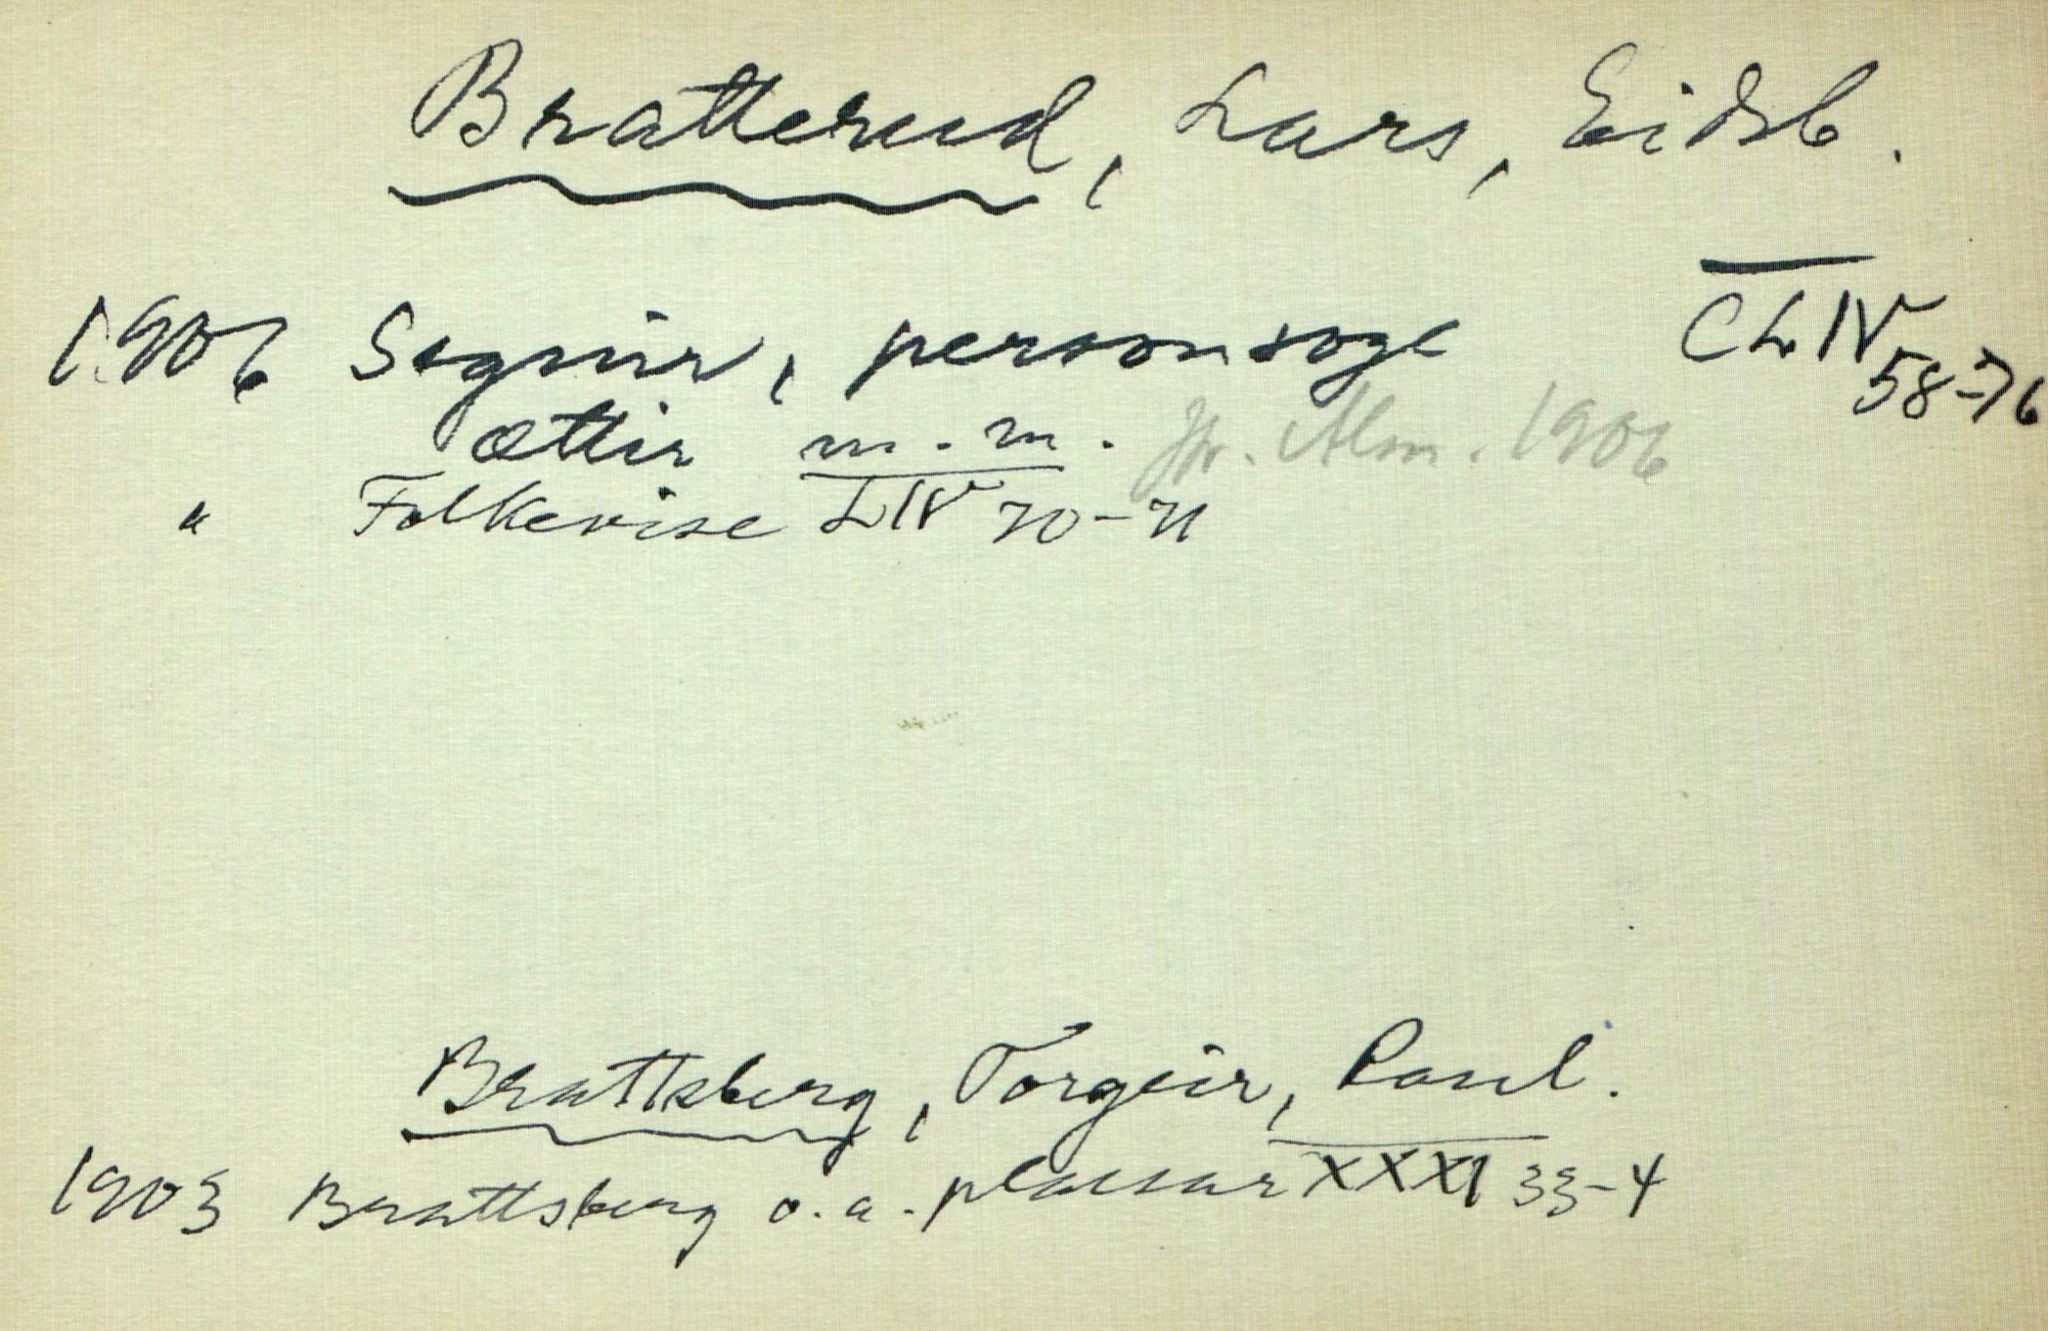 Bratterud, Lars, Eidsb.
1906 Segnir, personsoge CLIV 58-76
ættir m.m. Jfr. Alm. 1906
" Folkevise LIV 70-71
Brattsberg, Torgeir, Raul.
1903 Brattsberg o.a. plassar XXXI 33-4